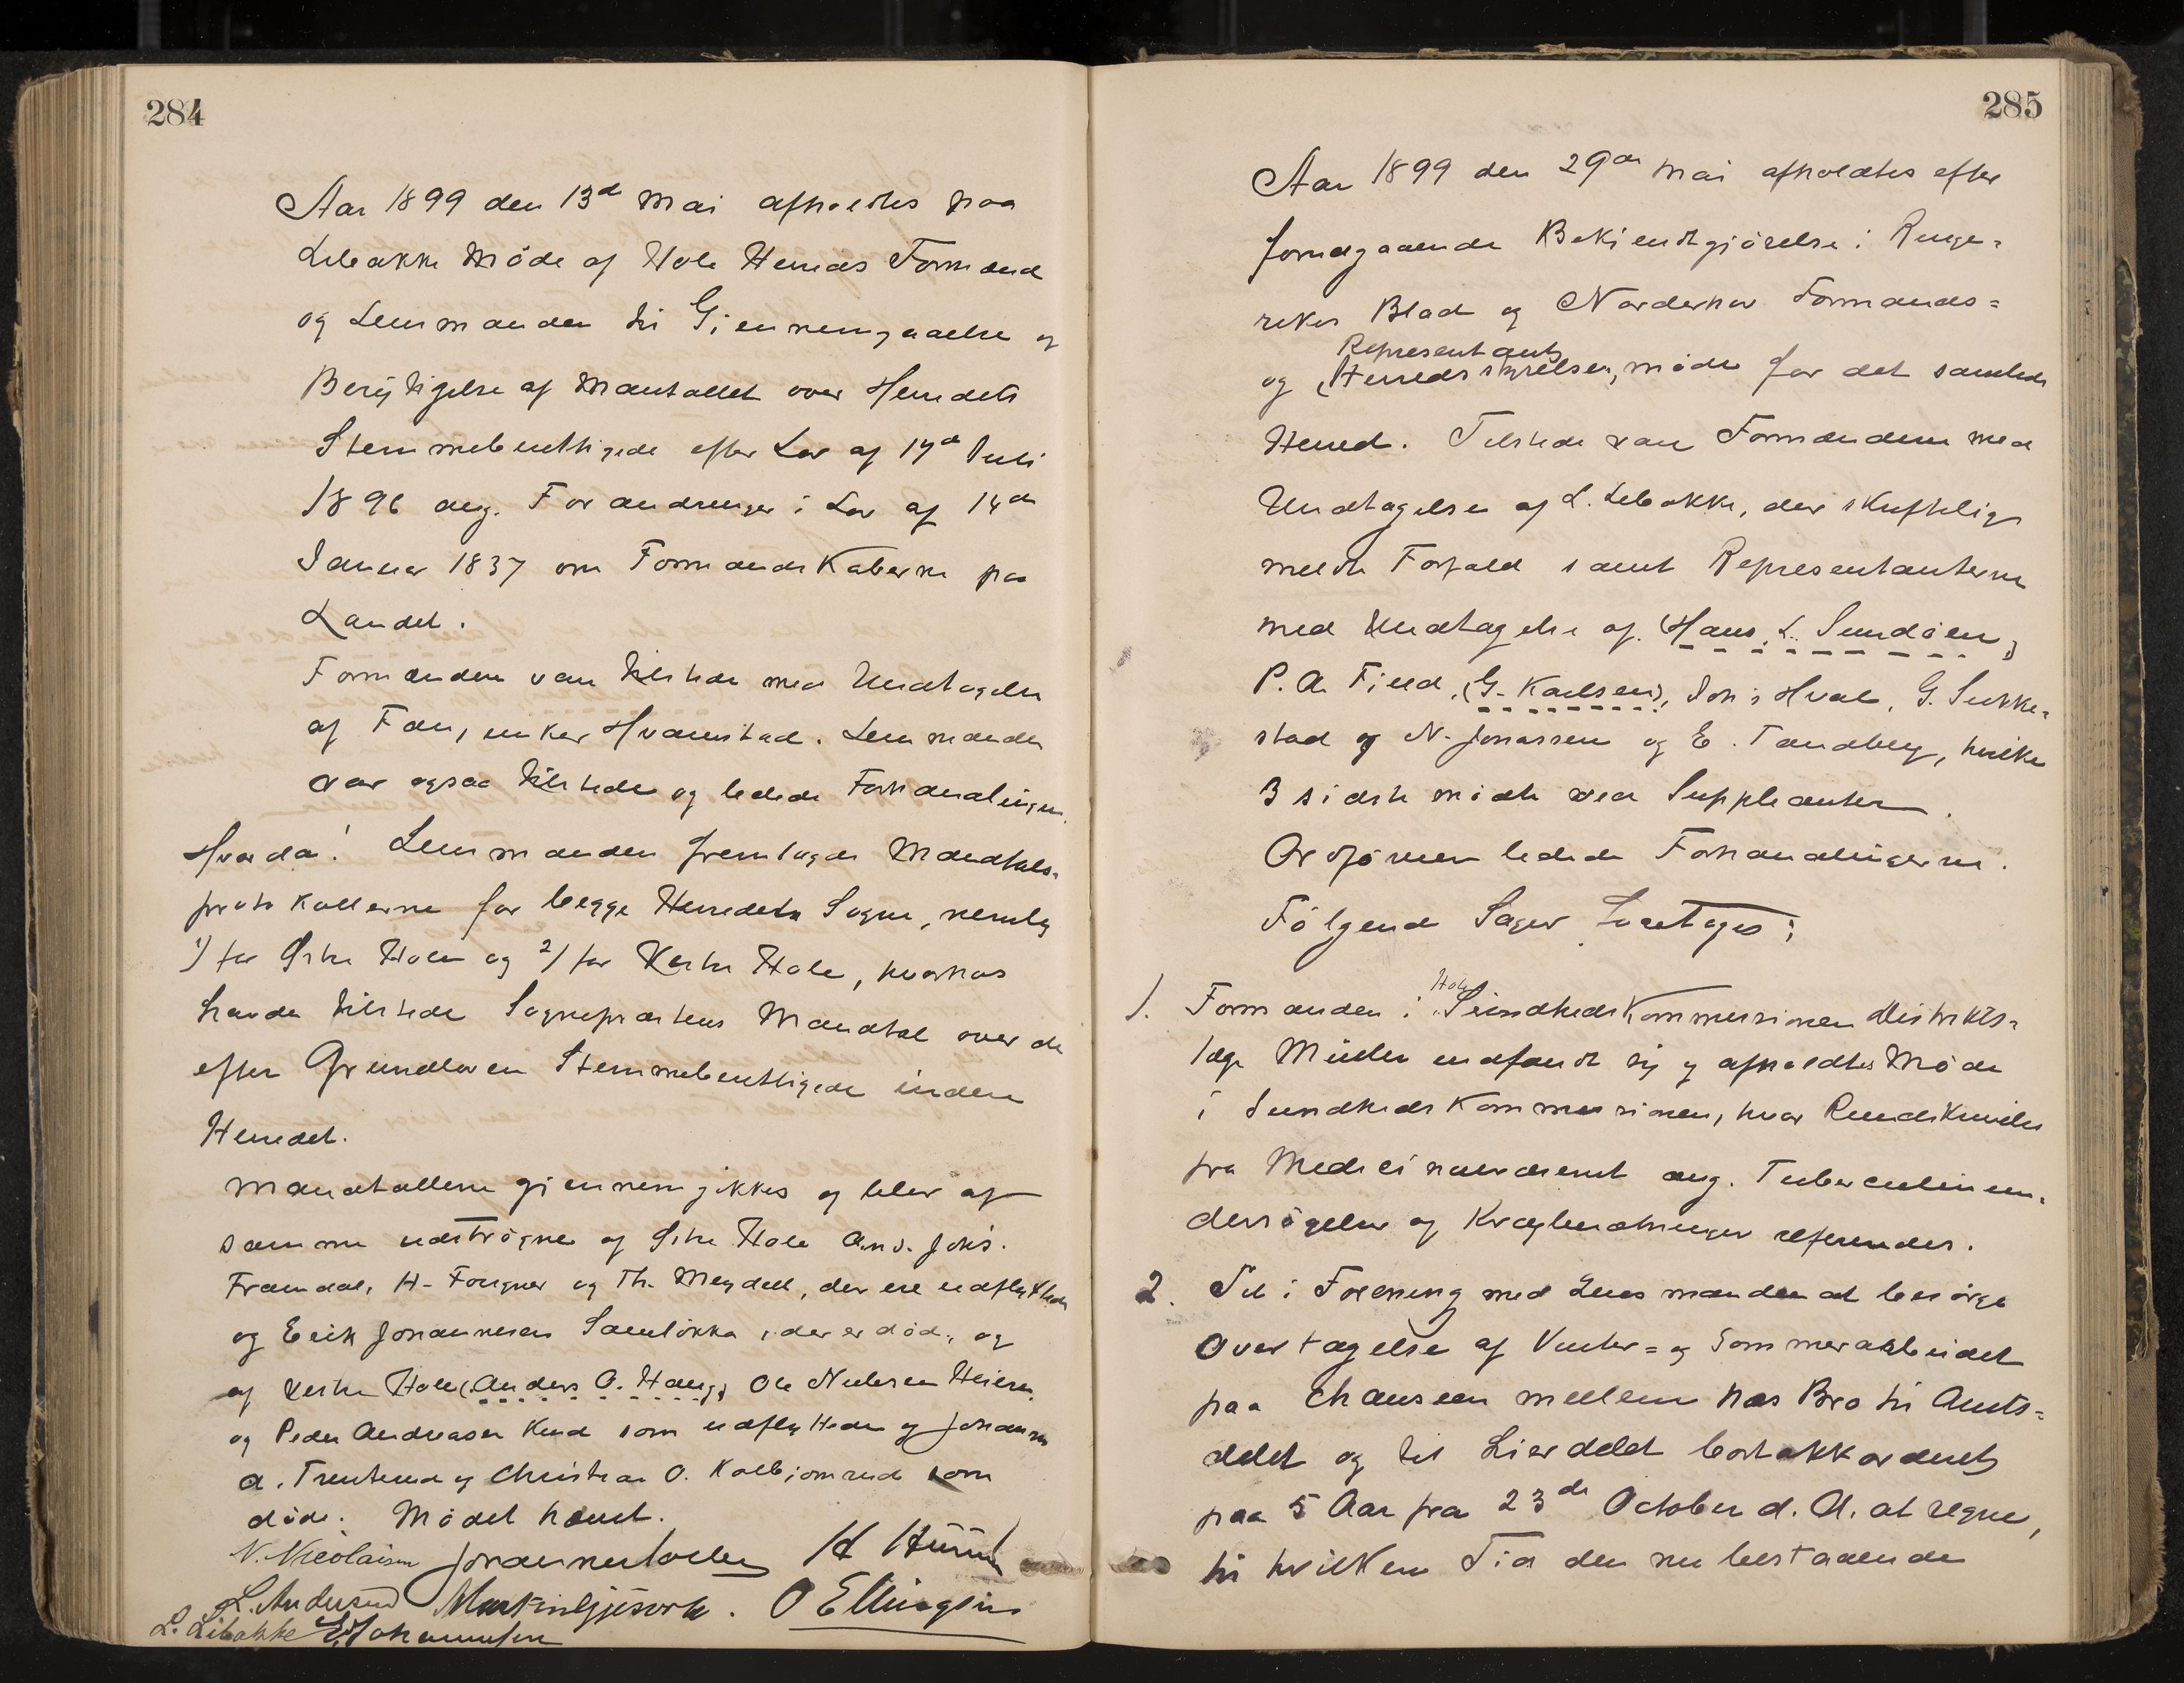 284
Aar 1899 den 13de Mai afholdtes paa
Libakke Møde af Hole Herreds Formænd
og Lensmanden til Gjennemgaaelse og
Berigtigelse af Mantallet over Herredets
Stemmeberettigede efter Lov af 17de Juli
1896 ang. Forandringer i Lov af 14de
Januar 1837 om Formandskaberne paa
Landet.
Formændene vare tilstede med Undtagelse
af Hvamstad. Lensmanden
var ogsaa tilstede og ledede Forhandlingen.
Hvorda! Lensmanden fremlagde Mandtals-
protokollerne for begge Herredets Sogne, nemlig
1) for Østre Hole og 2) for Vestre Hole, hvorhos
havdes tilstede Sogneprestens Mandtal over de
efter Grundloven Stemmeberettigede inden
Herredet.
Mandtallene gjennemgikkes og blev af
samme udstrøgne af Østre Hole And. Johs.
Framdal, H. Fougner og Th. Meydell, der ere udflyttede
og Erik Johannesen Samløkka, der er død, og
af Vestre Hole (Anders O. Haug), Ole Nielsen Heieren
og Peder Andreasen Rud som udflyttede og Johannes
A. Trulserud og Christian O. Kolbjørnrud som
døde. Mødet hævet.
N. Nicolaisen H Hurum
L. Andersen Martin Gjesvold. O Ellingsen
L. Libakke E. Johannesen
285
Aar 1899 den 29de Mai afholdtes efter
forudgaaende Bekjendtgjørelse i Ringe-
rikes Blad og Norderhov Formands-
Representant
og (Herredsstyrelsen, møde for det samlede
Herred. Tilstede vare Formændene med
Undtagelse af L. Libakke, der skriftlig
meldte Forfald samt Representanterne
med Undtagelse af (Hans L. Sundøen),
P. A. Fjeld, (G. Karlsen), Joh. Hval, G. Sukke-
stad og N. Jonassen og E. Tandberg, hvilke
3 sidste mødte ved Suppleanter.
Ordføreren ledede Forhandlingerne.
Følgende Sager foretoges:
Hole
1. Formanden i Sundhedskommissionen Distrikts-
læge Müller indfandt sig og afholdtes Møde
i Sundhedskommissionen, hvor Rundskrivelse
fra Medicinalvæsenet ang. Tuberculinun-
dersøgelser og Kvægbesætninger refereredes.
2. Til i Forening med Lensmanden at besørge
Overtagelse af Vinter= og Sommerarbeidet
paa Chauseen mellem Næs Bro til Amts-
delet og til Lierdelet bortakkorderet
paa 5 Aar fra 23de October d. A. at regne,
til hvilken Tid den nu bestaaende